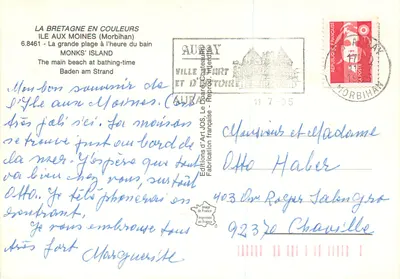 LA BRETAGNE EN COULEURS
ILE AUX MOINES (Morbihan)
6.8461 - La grande plage à l'heure du bain
MONKS' ISLAND
The main beach at bathing-time
Baden am Strand
Mon bon souvenir de
l'Ile aux Moines. C'est
très joli ici. La maison
se trouve juste au bord de
la mer. J'espère que tout
va bien chez vous, surtout
Otto. Je téléphonerai en
rentrant,
Je vous embrasse tous
très fort
Marguerite
Editions d'Art JOS, Le Doaré, Châteaulin
Fabrication française - Reproduction interdite
AURAY
VILLE D'ART
ET D'HISTOIRE
AURAY
MORBIHAN
Monsieur et Madame
Otto Haber
403 Av Roger Salengro
92370 Chaville